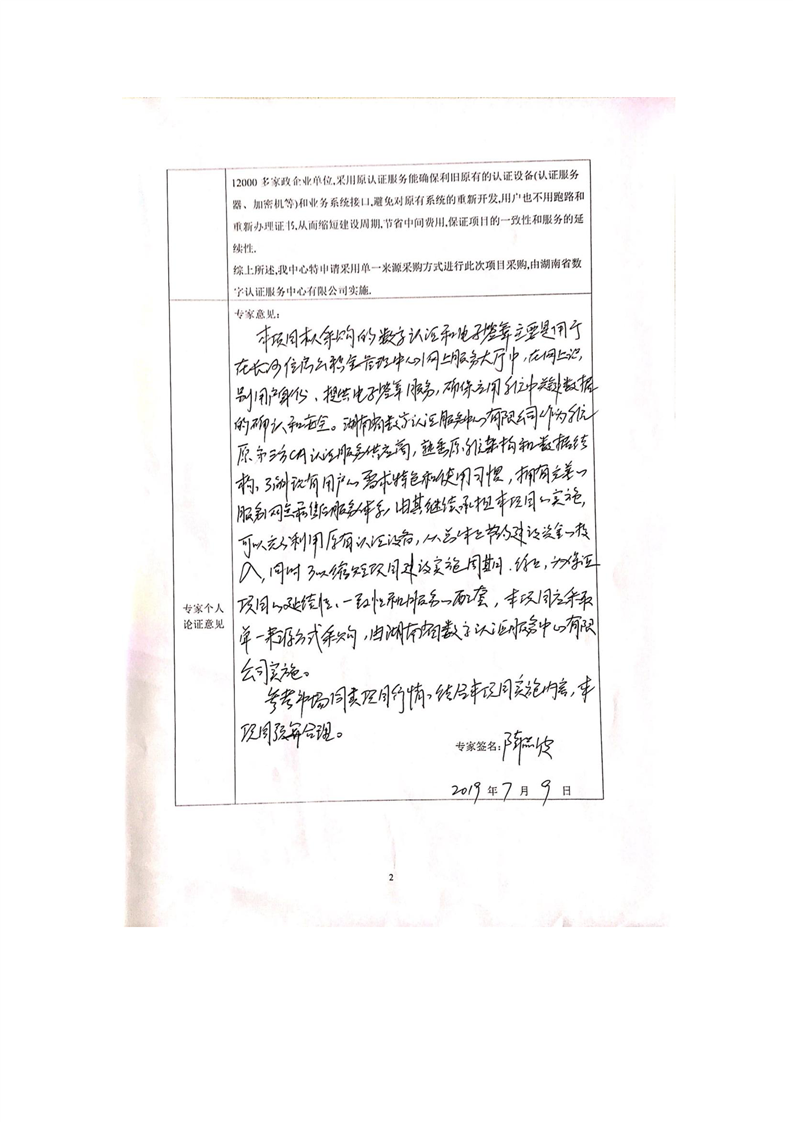 12000 多家政企业单位,采用原认证服务能确保利旧原有的认证设备(认证服务
器、加密机等)和业务系统接口,避免对原有系统的重新开发,用户也不用跑路和
重新办理证书,从而缩短建设周期,节省中间费用,保证项目的一致性和服务的延
续性.
综上所述,我中心特申请采用单一来源采购方式进行此次项目采购,由湖南省数
字认证服务中心有限公司实施.
专家个人
论证意见
专家意见:
本项目采购的数字认证和电子签章主要是用于
在长沙住房公积金管理中心网上服务大厅中,在网上识
别用户身份、提供电子签章服务,确保应用系统中关键数据
的确认和安全。湖南省数字认证服务中心有限公司作为系统
原第三方CA认证服务供应商,熟悉原系统架构和数据结
构,了解现有用户的需求特色和使用习惯,拥有完善的
服务网点和售后服务体系,由其继续承担本项目的实施,
可以充分利用原有认证设备,从总体上节约建设资金的投
入,同时可以缩短项目建设实施周期。综上,为保证
项目的延续性、一致性和服务的配套,本项目应采取
单一来源方式采购,由湖南省数字认证服务中心有限
公司实施。
参考市场同类项目行情,结合本项目实施内容,本
项目预算合理。
专家签名:
2019 年 7 月 9 日
2